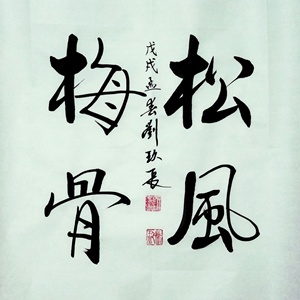 松風
梅骨
戊戌孟春劉玖長